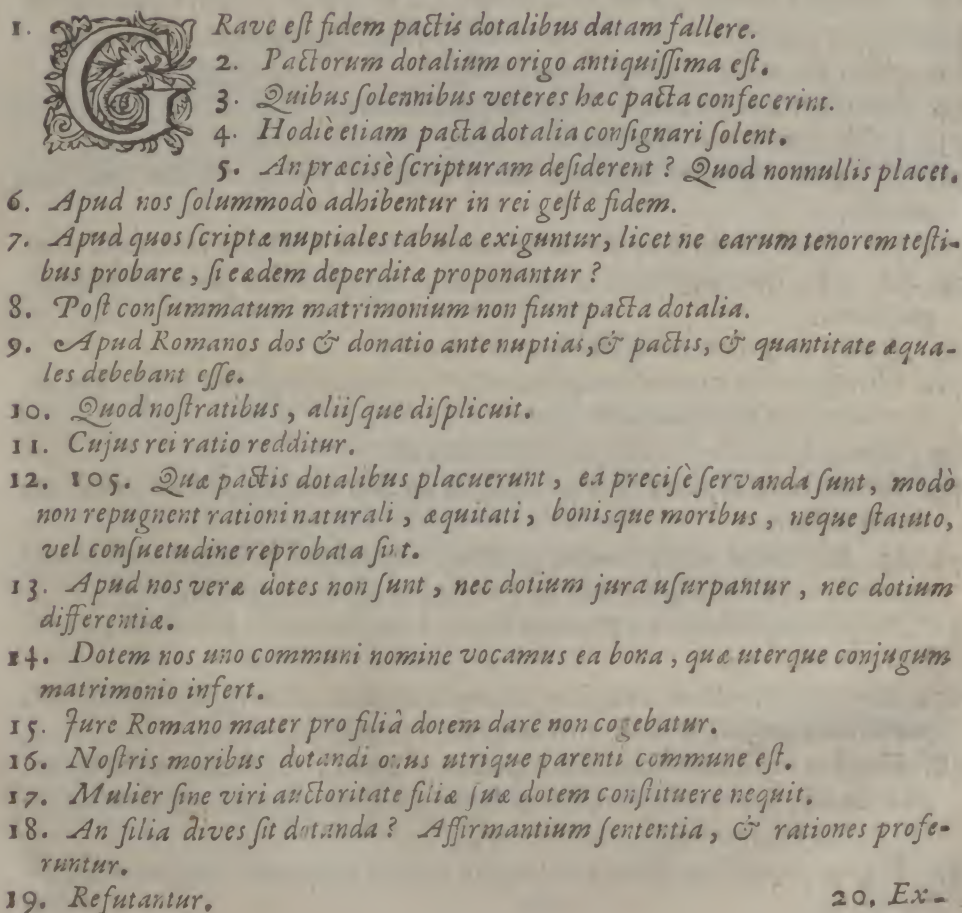 1. GRave eſt fidem pactis dotalibus datam fallere.
2. Pactorum dotalium origo antiquiſſima eſt.
3. Quibus ſolennibus veteres hæc pacta confecerint.
4. Hodiè etiam pacta dotalia conſignari ſolent.
5. An præcisè ſcripturam deſiderent? Quod nonnullis placet.
6. Apud nos ſolummodò adhibentur in rei geſtæ fidem.
7. Apud quos ſcriptæ nuptiales tabulæ exiguntur, licet ne earum tenorem teſti-
bus probare, ſi eædem deperditæ proponantur?
8. Poſt conſummatum matrimonium non fiunt pacta dotalia.
9. Apud Romanos dos & donatio ante nuptias, & pactis, & quantitate æqua-
les debebant eſſe.
10. Quod noſtratibus, aliiſque diſplicuit.
11. Cujus rei ratio redditur.
12. 105. Quæ pactis dotalibus placuerunt, ea preciſè ſervanda ſunt, modò
non repugnent rationi naturali, æquitati, bonisque moribus, neque ſtatuto,
vel conſuetudine reprobata ſint.
13. Apud nos veræ dotes non ſunt, nec dotium jura uſurpantur, nec dotium
differentiæ.
14. Dotem nos uno communi nomine vocamus ea bona, quæ uterque conjugum
matrimonio infert.
15. Jure Romano mater pro filiâ dotem dare non cogebatur.
16. Noſtris moribus dotandi onus utrique parenti commune eſt.
17. Mulier ſine viri auctoritate filiæ ſuæ dotem conſtituere nequit.
18. An filia dives ſit dotanda? Affirmantium ſententia, & rationes profe-
runtur.
19. Refutantur. 20. Ex-